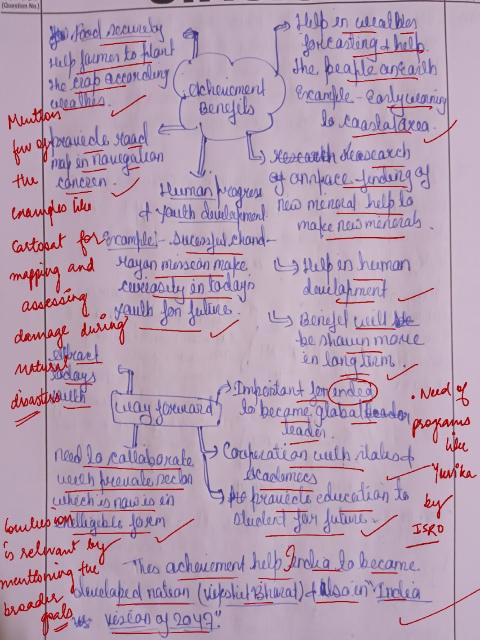 (Question No.)
Food security
Help farmer to plant
the crop according
weather.
Help in weather
forcasting & help
the people on earth
Example - Early warning
to coastal area.
Acheivment
Benefits
provide road
map in navegation
concern.
Research
of on space - finding of
new meneral help to
make new menerals.
Human progress
& youth development
Example:- Sucessful chand-
rayan mission make
curiosity in today's
youth for future.
Help in human
development
Benefit will be
be shown more
in long term.
Mention
few of
the
examples like
Cartosat for
mapping and
assessing
damage during
natural
disasters
attract
todays
youth
way forward
Important for india
to became global leader
leader.
Cooperation with states &
academics
provide education to
student for future.
need to collaborate
with private sector
which is now is in
negligible form
Need of
programs
like
Yuvika
by
ISRO
Conclusion
is relevant by
mentioning the
broader
goals
This acheivement help India to became
developed nation (Vikshit Bharat) & also in "India
vision of 2047."